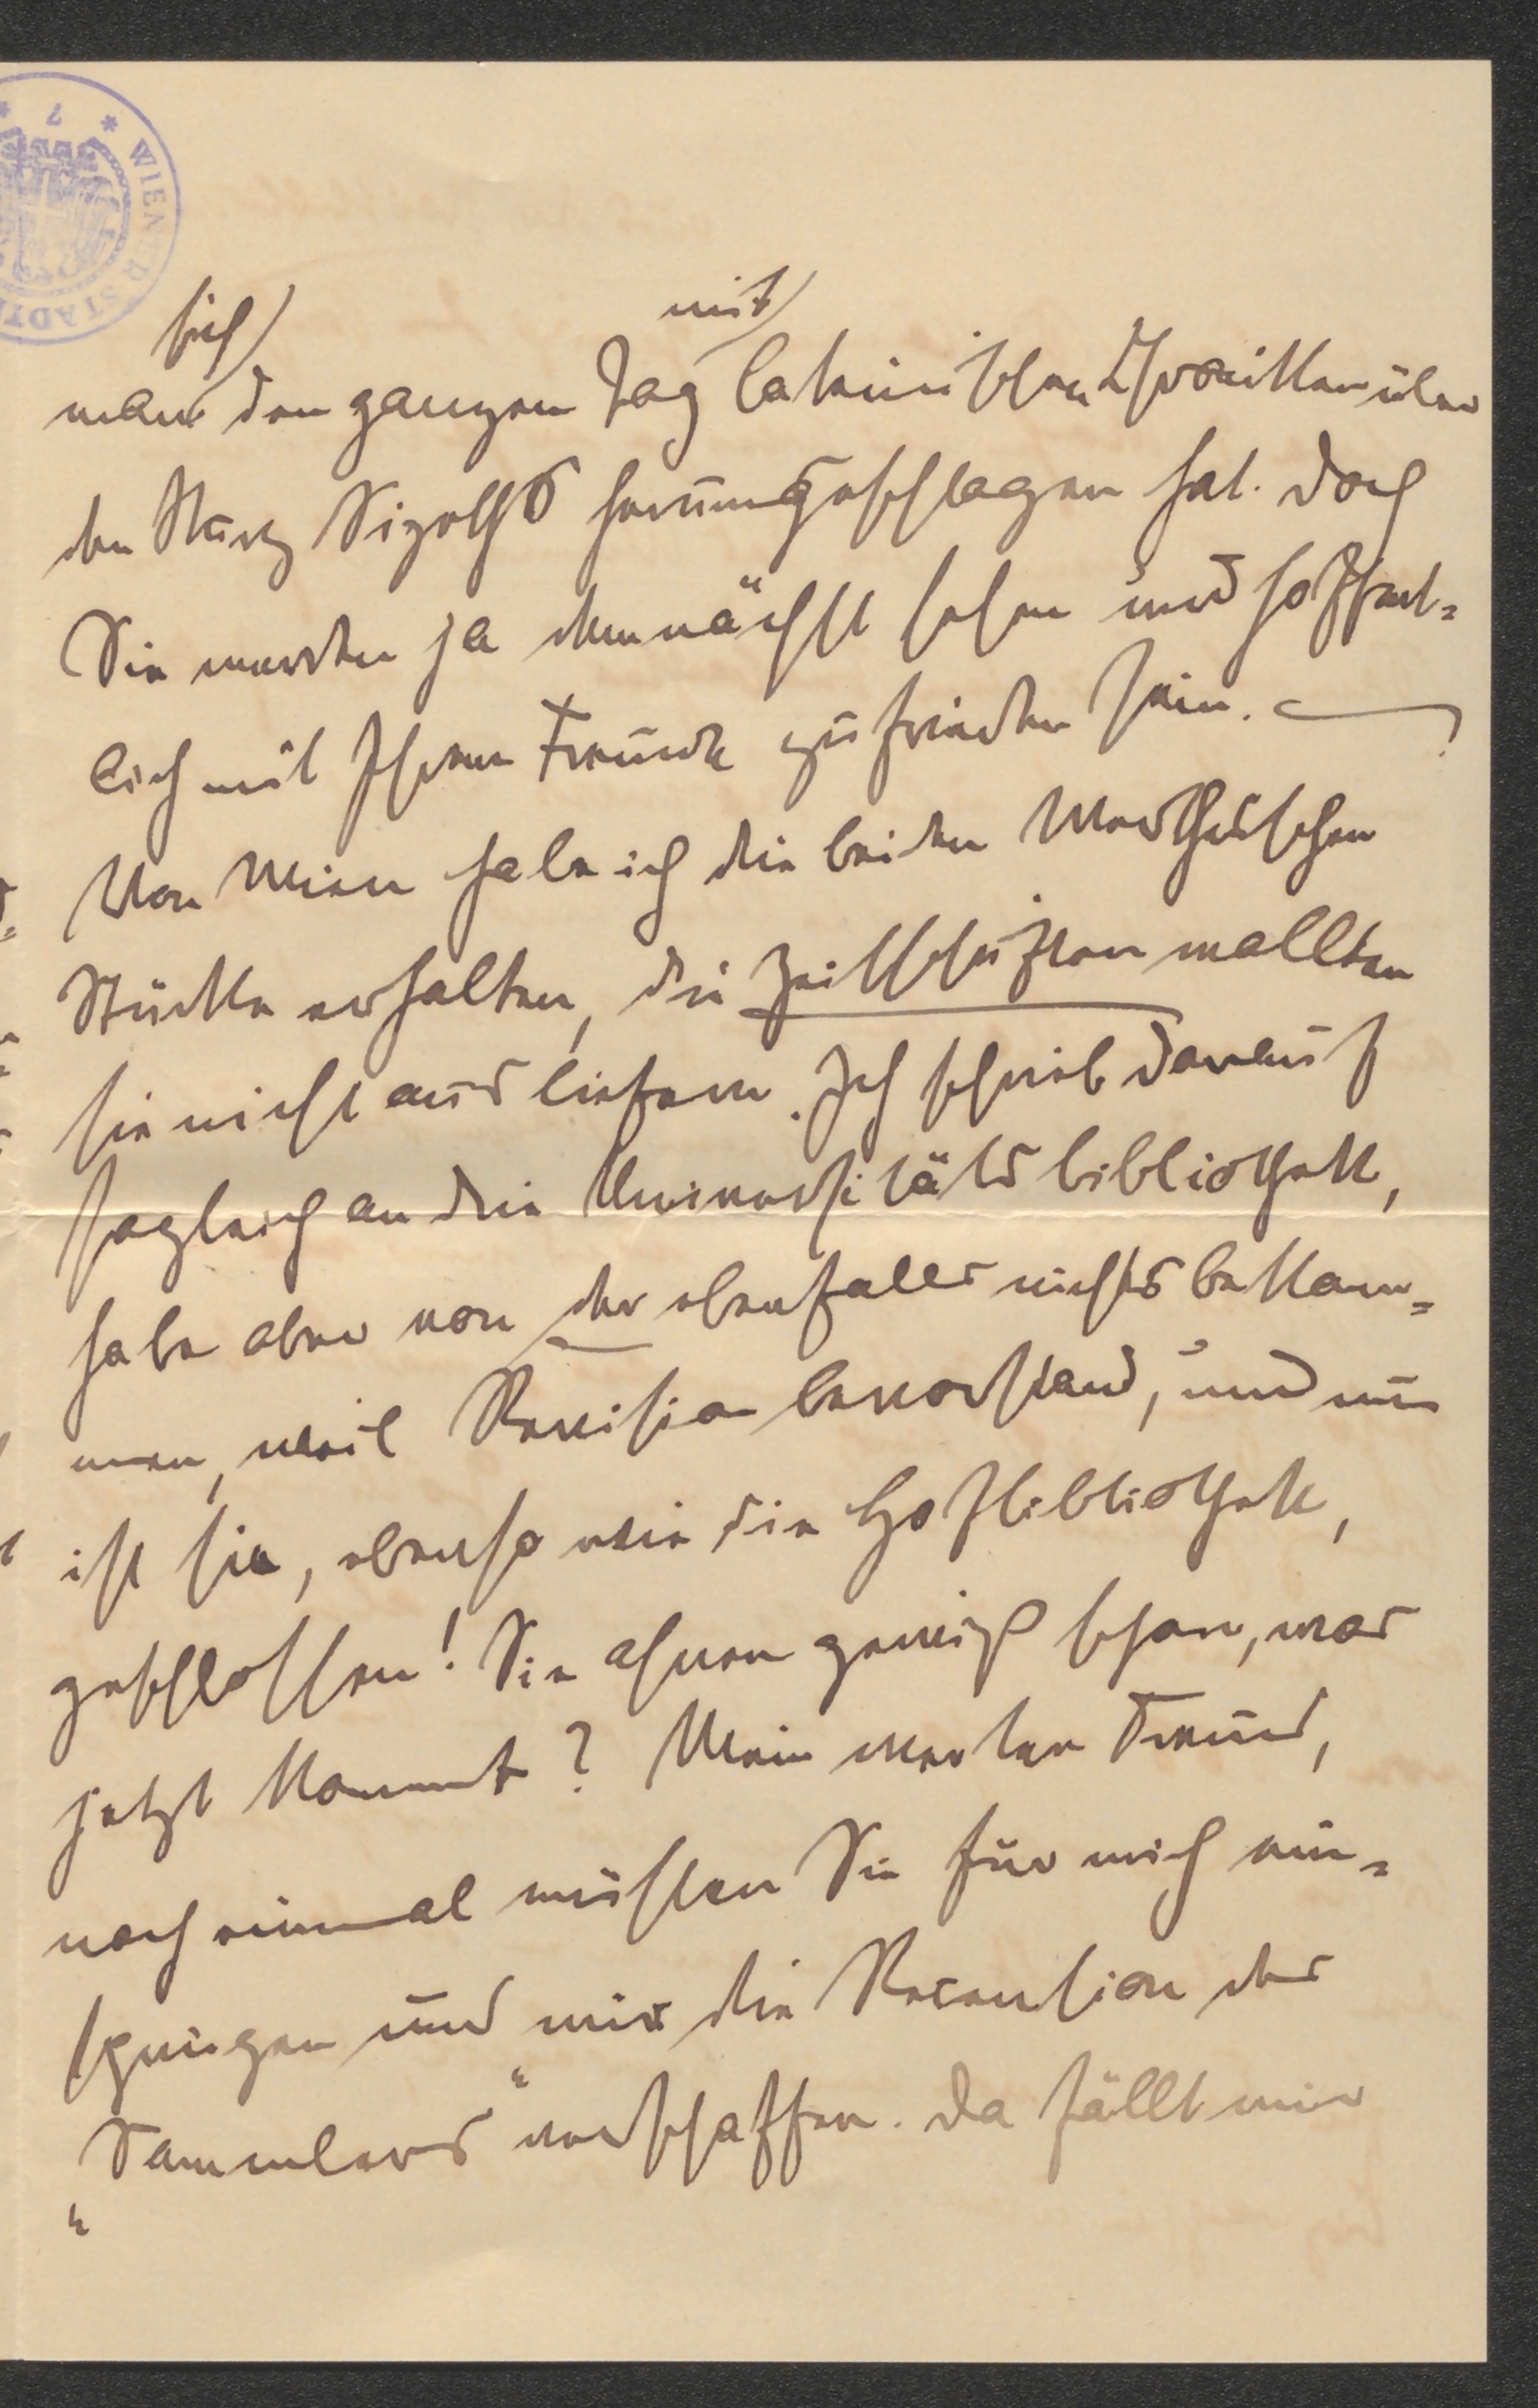 WIENER STADT
7
sich mit
man den ganzen Tag lateinischen Chroniken über
den Sturz herumgeschlagen hat. Doch
Sie werden ja demnächst sehen und hoffent-
lich mit Ihrem Freunde zufrieden sein. —
Von Wien habe ich die beiden
Stücke erhalten, die Zeitschriften wollten
sie nicht ausliefern. Ich schrieb darauf
sogleich an die Universitätsbibliothek,
habe aber von der ebenfalls nichts bekom-
men, weil Revision bevorstand, und nun
ist sie, ebenso wie die Hofbibliothek,
geschlossen! Sie ahnen gewiß schon, was
jetzt kommt? Mein werter Freund,
noch einmal müssen Sie für mich ein-
springen und mir die Recension des
„Sammlers“ verschaffen. Da fällt mir